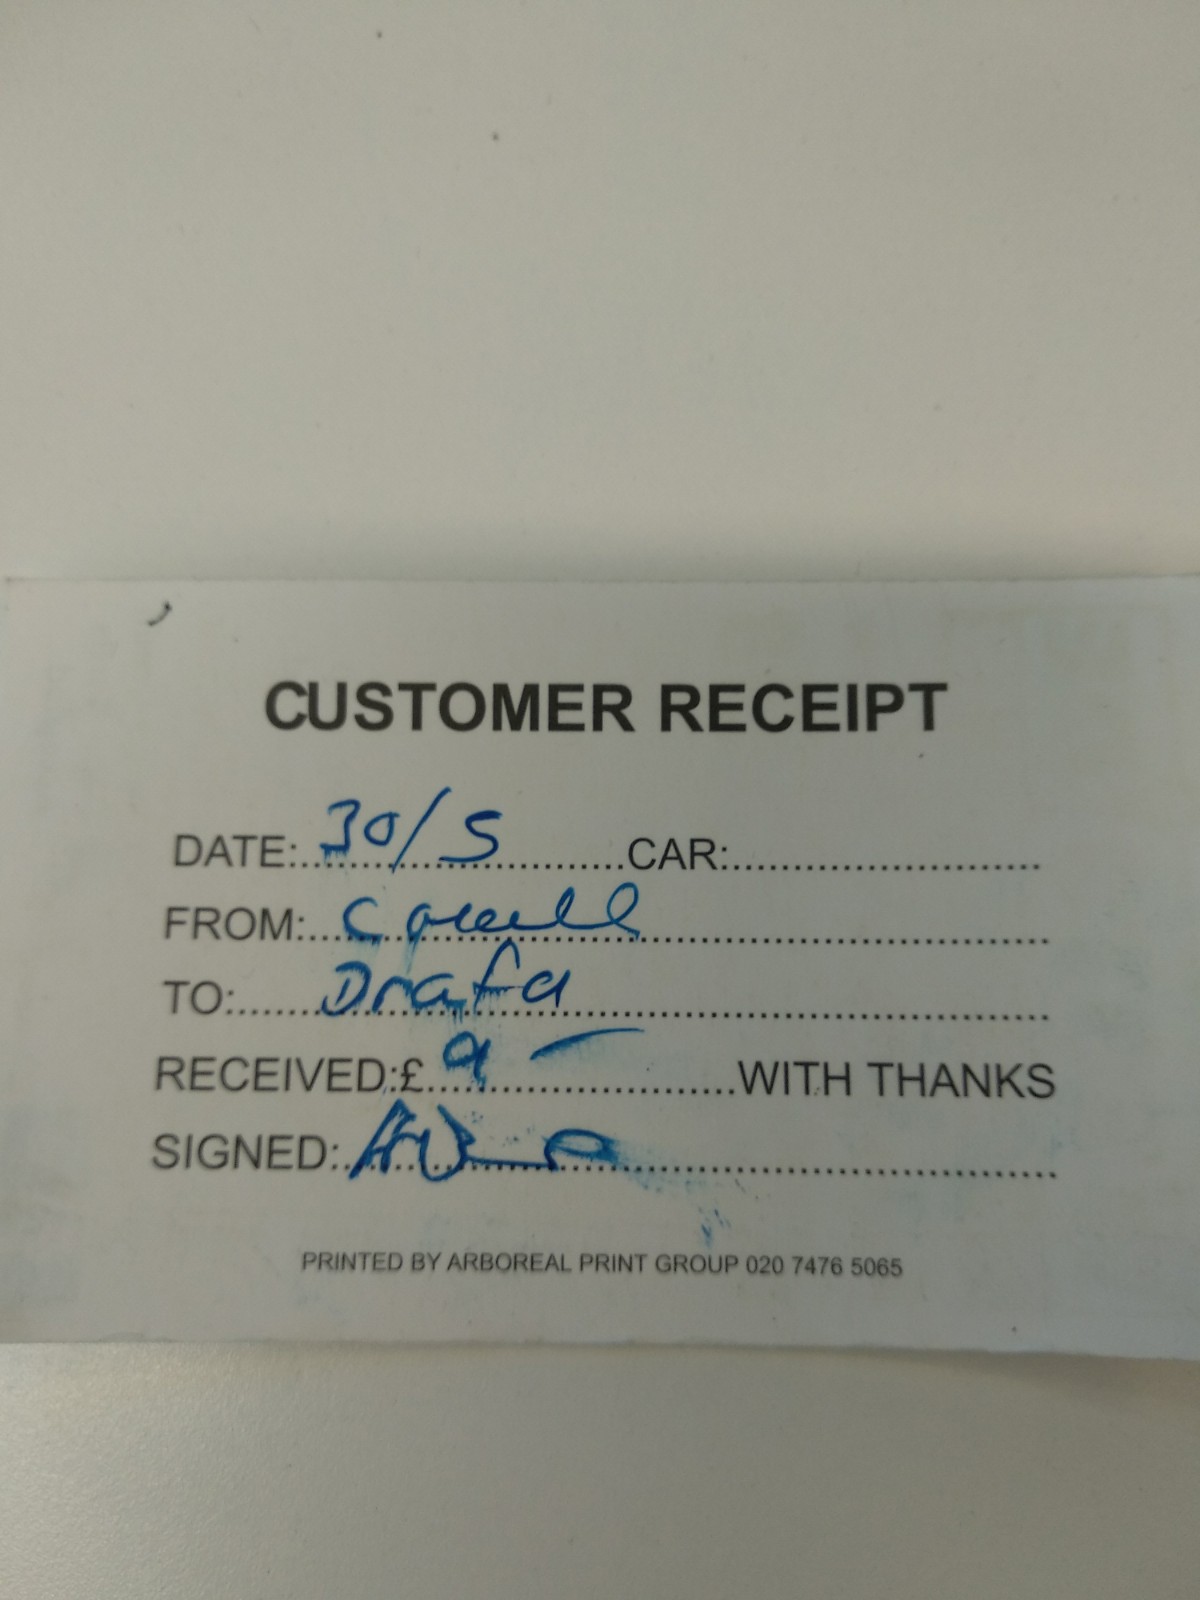 CUSTOMER RECEIPT
DATE: 30/5 CAR:
FROM:
TO: Drafa
RECEIVED:£ 9 — WITH THANKS
SIGNED:
PRINTED BY ARBOREAL PRINT GROUP 020 7476 5065